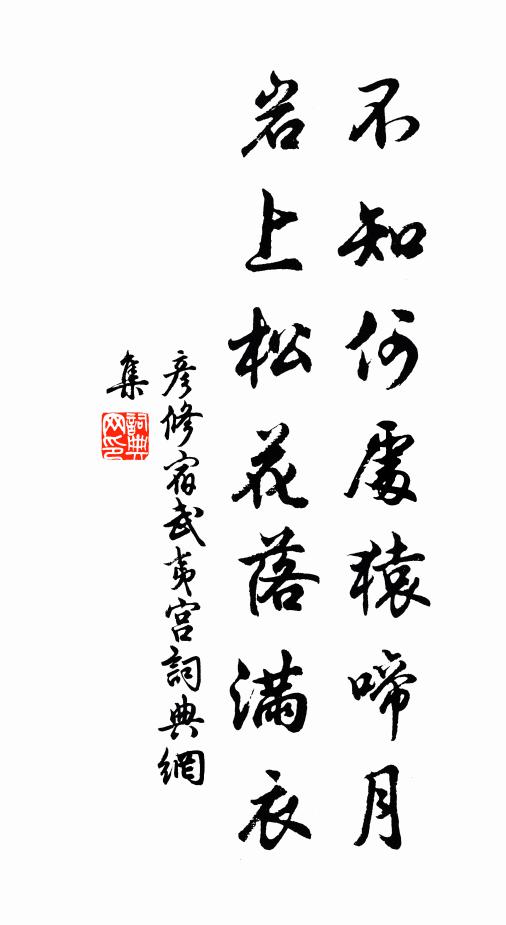 不知何處猿啼月
岩上松花落滿衣
彥修宿武夷宮詞典網
集
詞典
网印